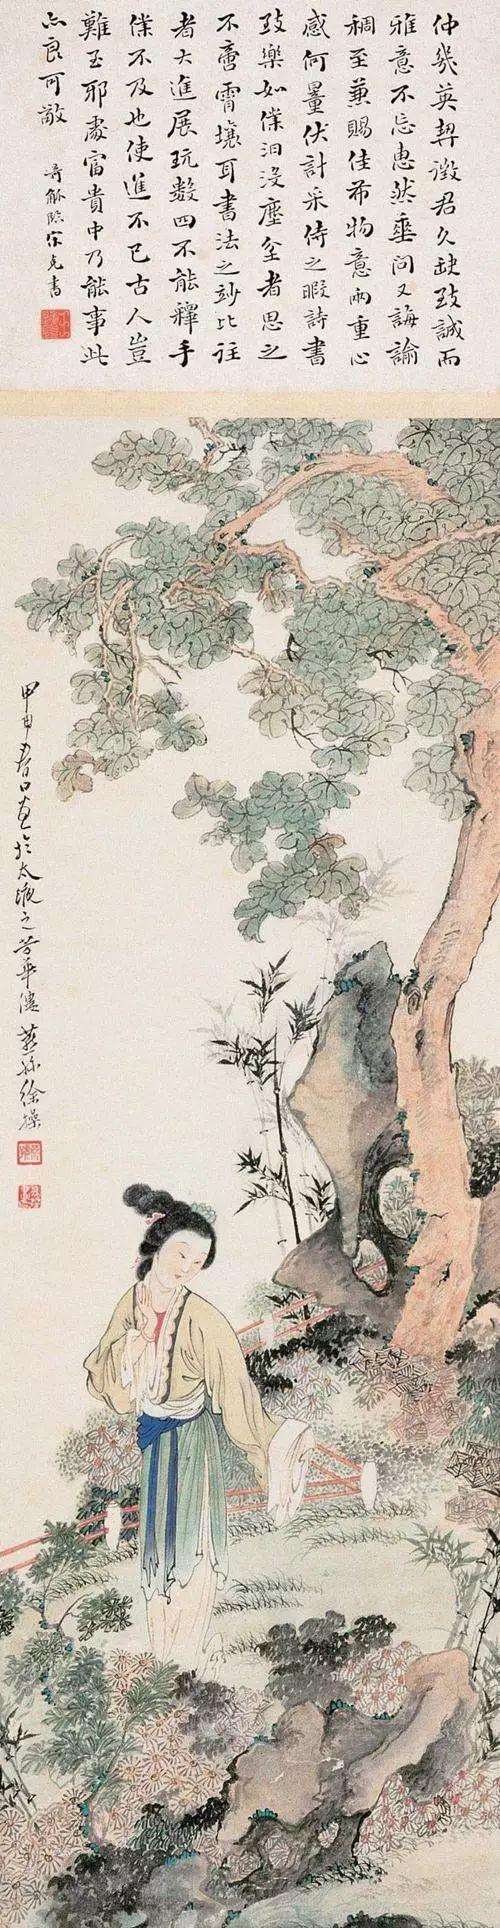 仲幾英契徵君久缺致誠而
雅意不忘惠然垂问又誨諭
稠至兼賜佳希物意兩重心
感何量伏計采侍之暇詩書
致樂如僕汩没塵坌者思之
不啻霄壤耳書法之妙比往
者大進展玩數四不能釋手
僕不及也使進不已古人豈
難至耶處富貴中乃能事此
亦良可敬
觚臨宋克書
甲申春日画於太液之芳華 燕孫徐操